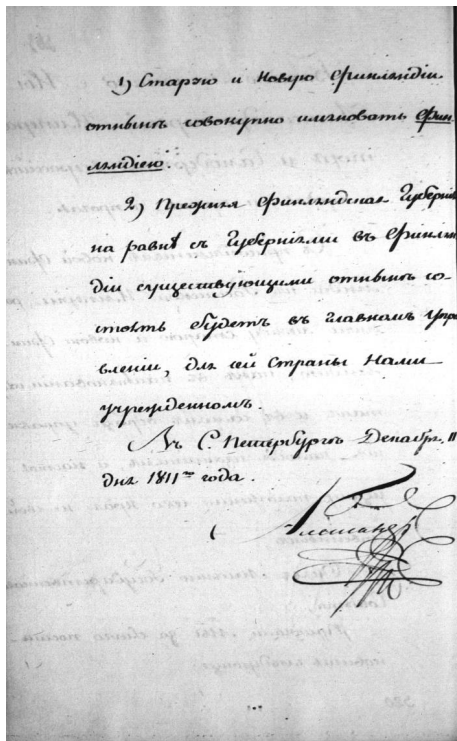 1) Старую и Новую Финляндіи
отнынѣ совокупно именовать Фин-
ляндіею.
2) Прежняя Финляндская Губернія
на равнѣ съ Губерніями въ Финлян
діи существующими отнынѣ со-
стоять будетъ въ главномъ упра
вленіи, для сей страны Нами
учрежденномъ.
Въ С. Петербургѣ Декабр. 11
дня 1811го года.